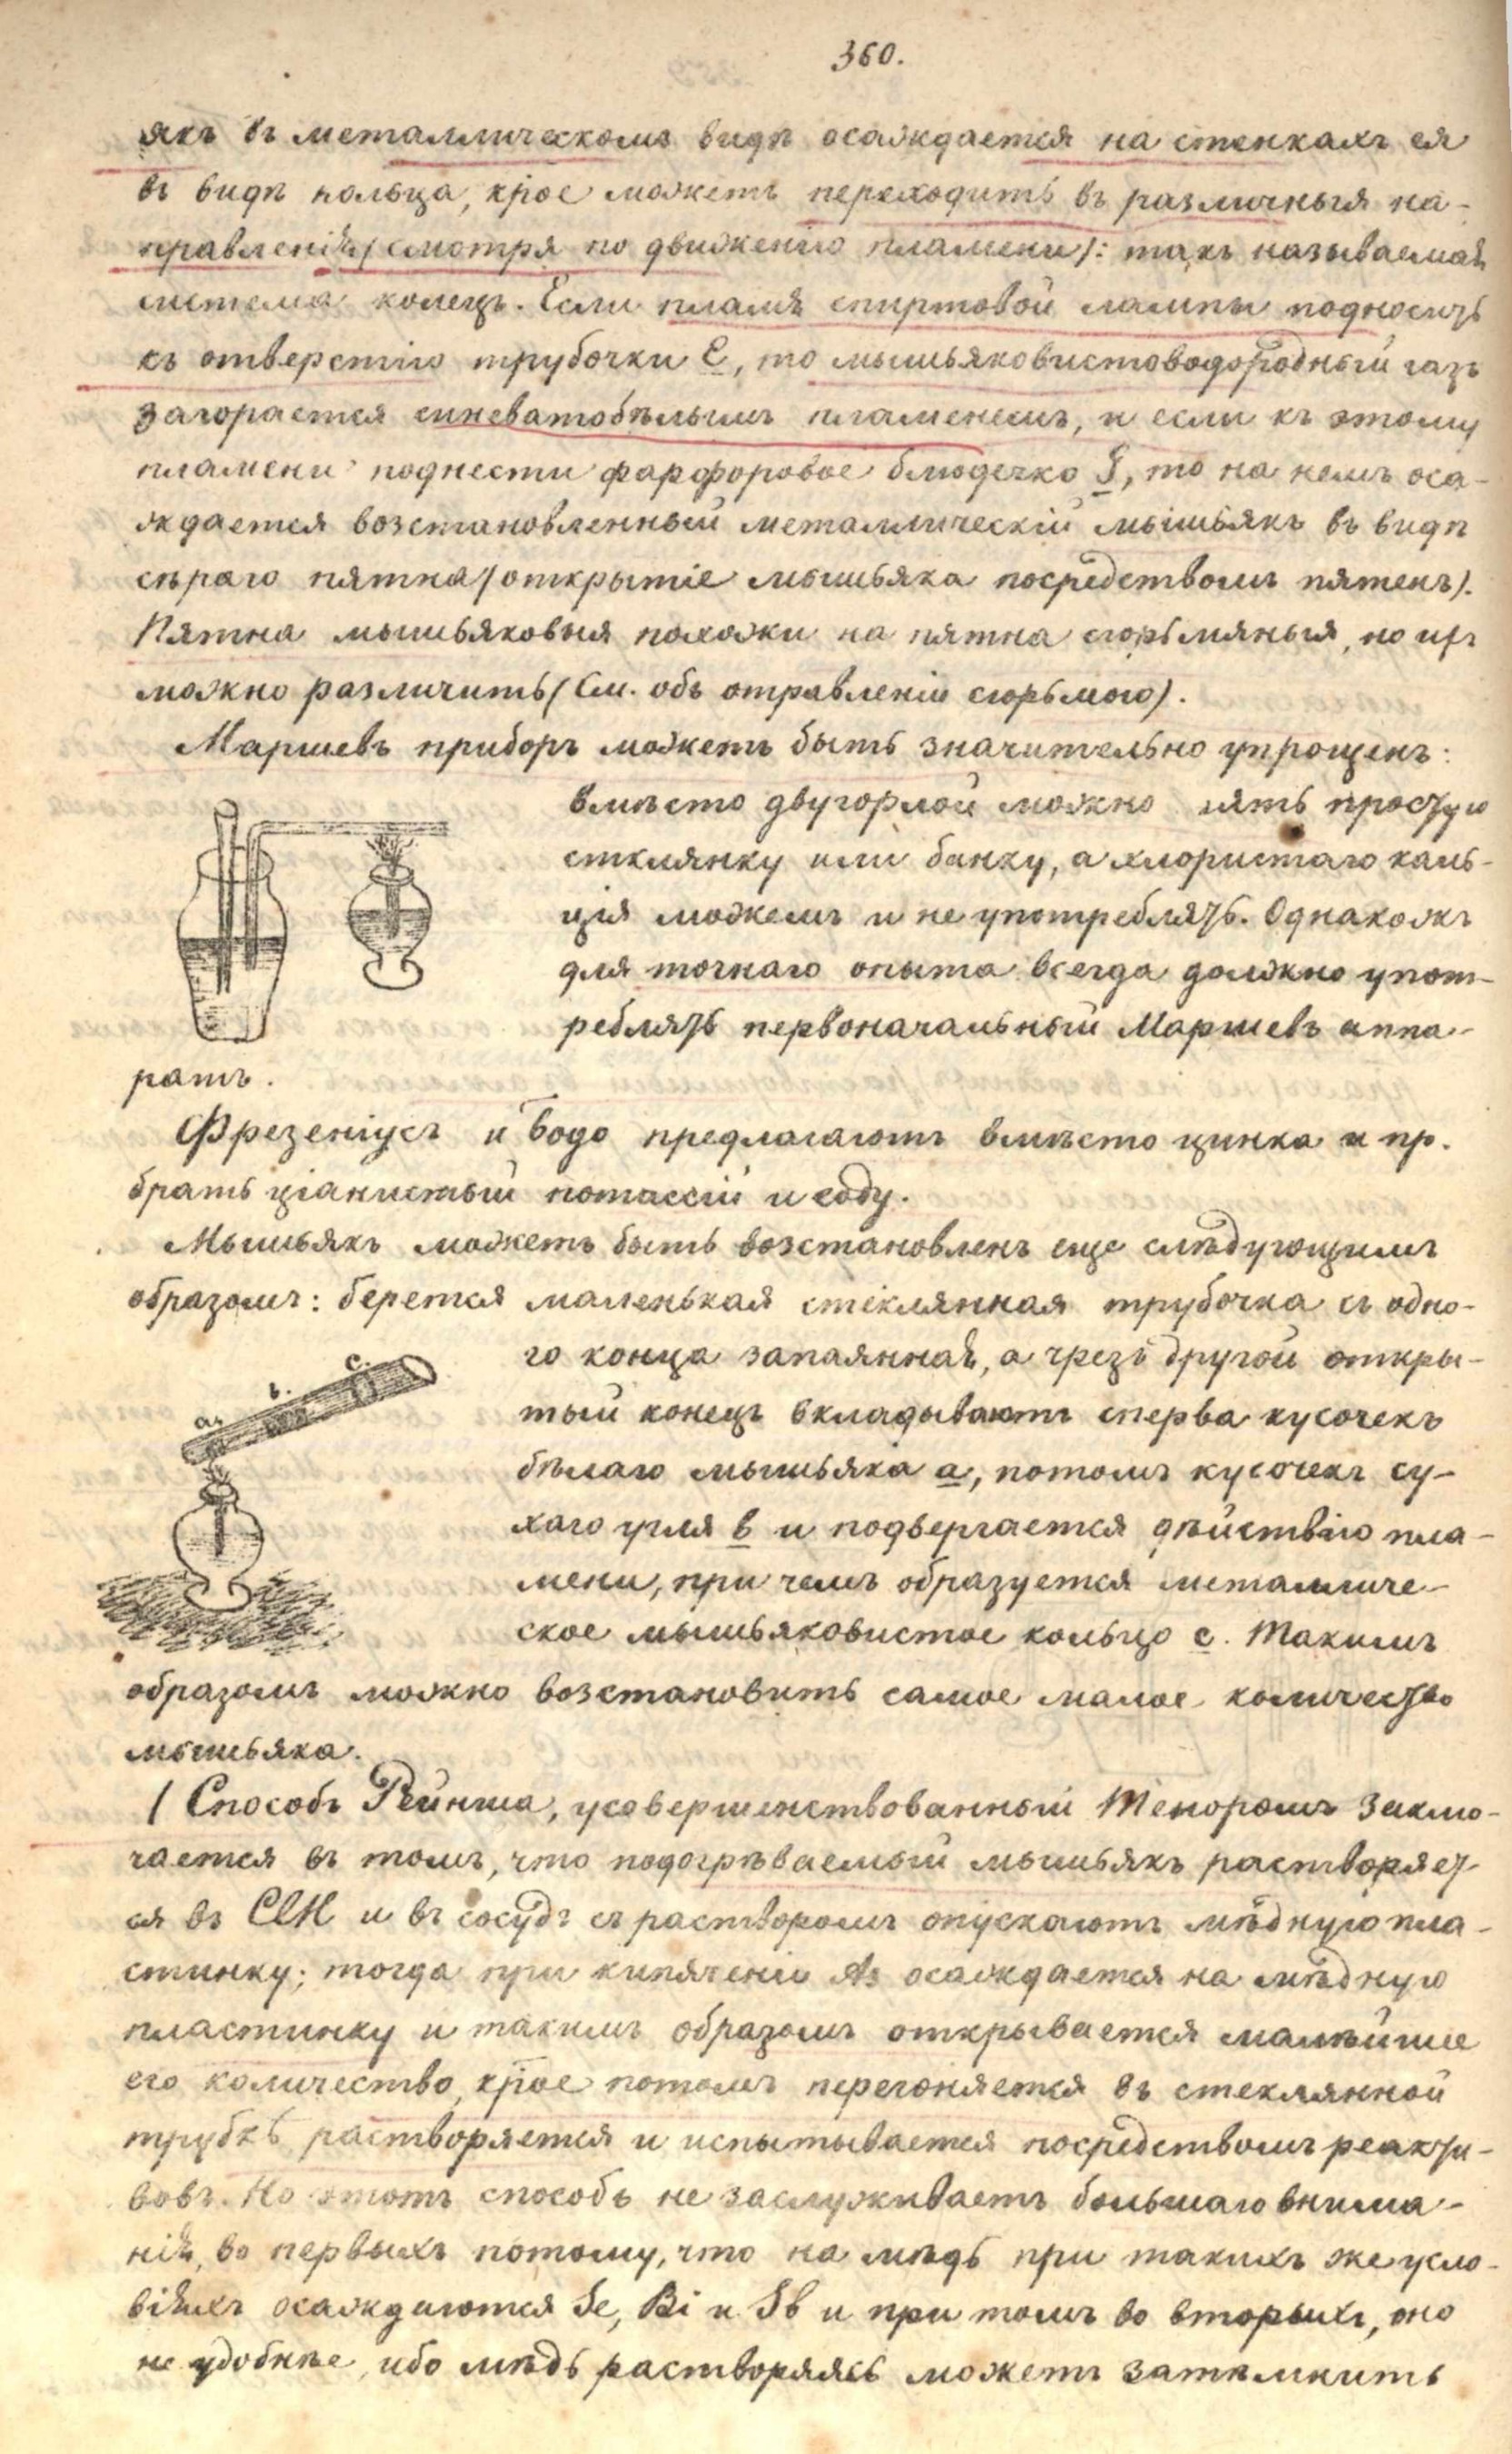 360.
якъ въ металлическомъ видѣ осаждается на стенкахъ ея
въ видѣ кольца, крое можетъ переходить въ различныя на-
правленія (смотря по движенію пламени): такъ называемая
система колецъ. Если пламя спиртовой лампы подносить
къ отверстію трубочки Е, то мышьяковистоводородный газъ
загорается синеватобѣлымъ пламенемъ, и если къ этому
пламени поднести фарфоровое блюдечко J, то на немъ оса-
ждается возстановленный металлическій мышьякъ въ видѣ
сѣраго пятна (открытіе мышьяка посредствомъ пятенъ).
Пятна мышьяковыя похожи на пятна сюрьмяныя, но ихъ
можно различить (См. объ отравленіи сюрьмою).
Маршевъ приборъ можетъ быть значительно упрощенъ:
вмѣсто двугорлой можно взять простую
стклянку или банку, а хлористаго каль-
ція можемъ и не употреблять. Однакожъ
для точнаго опыта всегда должно упот-
реблять первоначальный Маршевъ аппа-
ратъ.
Фрезеніусъ и Бодо предлагаютъ вмѣсто цинка и пр.
брать ціанистый потассій и соду.
Мышьякъ можетъ быть возстановленъ еще слѣдующимъ
образомъ: берется маленькая стеклянная трубочка съ одно-
го конца запаянная, а чрезъ другой откры-
тый конецъ вкладываютъ сперва кусочекъ
бѣлаго мышьяка а, потомъ кусочекъ су-
хаго угля в и подвергается дѣйствію пла-
мени, при чемъ образуется металличе-
ское мышьяковистое кольцо с. Такимъ
а.
в.
с.
образомъ можно возстановить самое малое количество
мышьяка.
( Способъ Рейнша, усовершенствованный Теноромъ заклю-
чается въ томъ, что подогрѣваемый мышьякъ растворяет-
ся въ ClH и въ сосудъ съ растворомъ опускаютъ мѣдную пла-
стинку; тогда при кипяченіи As осаждается на мѣдную
пластинку и такимъ образомъ открывается малѣйшее
его количество, крое потомъ перегоняется въ стеклянной
трубкѣ, растворяется и испытывается посредствомъ реакти-
вовъ. Но этотъ способъ не заслуживаетъ большаго внима-
нія, во первыхъ потому, что на мѣдь при такихъ же усло-
віяхъ осаждаются Se, Bi и Sb и при томъ во вторыхъ, оно
не удобнѣе, ибо мѣдь растворяясь можетъ затемнить